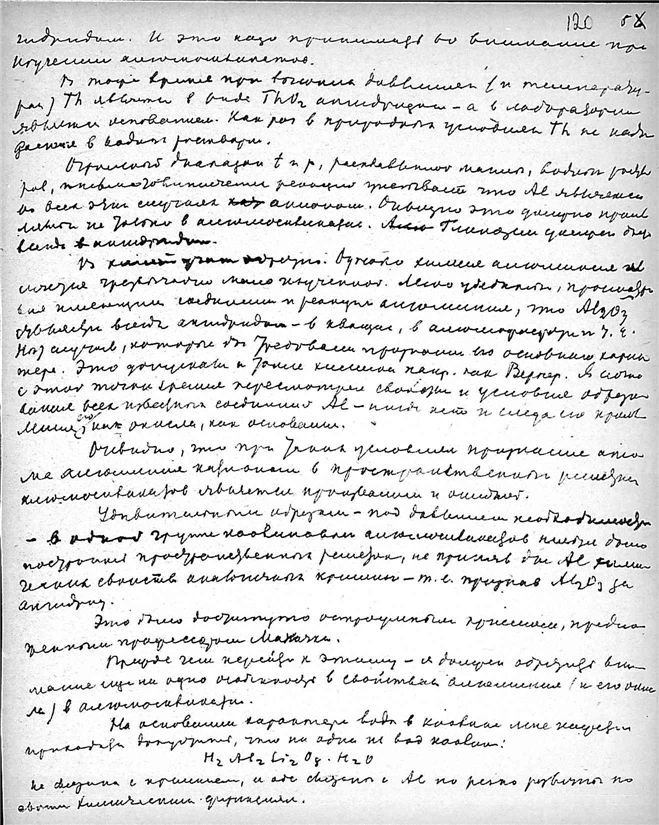 120 58
ангидридом. И это надо принимать во внимание при
изучении алюмосиликатов.
В тоже время при высоких давлениях (и температу-
рах) Th является в виде ThO2 ангидридом – а в лаборатории
является основанием. Как раз в природных условиях Th не
в водных растворах.
Огромный диапазон t и p, расплавленного магмы, водных раство-
ров, реакции указывает что Al является
во всех этих случаях анионом. Очевидно это должно
не только в алюмосиликатах. Глинозем должен быть
всегда ангидридом.
В Однако химия алюминия
чрезвычайно мало изученной. Легко убедиться,
соединения и реакции алюминия, что Al2O3
является всегда ангидридом – в квасцах, в и т. д.
Нет случаев, которые бы требовали признания его основного харак-
тера. Это допускали и такие химики напр. как Вернер. Я
с этой точки зрения пересмотрел свойства и условия образо-
вания всех известных соединений Al – нигде нет и следа его
как окисла, как основания.
Очевидно, что при таких условиях признание ато-
ма алюминия катионом в пространственных решетках
алюмосиликатов является произвольным и ошибкой.
Удивительным образом – под давлением необходимости
– в одной группе каолиновых алюмосиликатов нельзя было
построить пространственных решеток, не приняв для Al хими-
ческих свойств аналогичных кремнию – т.е. признав Al2O3 за
ангидрид.
Это было достигнуто остроумным приемом, предло-
женным профессором Махачки.
Прежде чем перейти к этому – я должен обратить вни-
мание еще на одно особенность в свойствах алюминия (и его окис-
ла) в алюмосиликатах.
На основании характера воды в каолине мне кажется
приходится допустить, что ни одна из вод каолина:
H2 Al2 Si2 O8 · H2O
не связана с кремнием, и обе связаны с Al но резко различны по
своим химическим функциям.